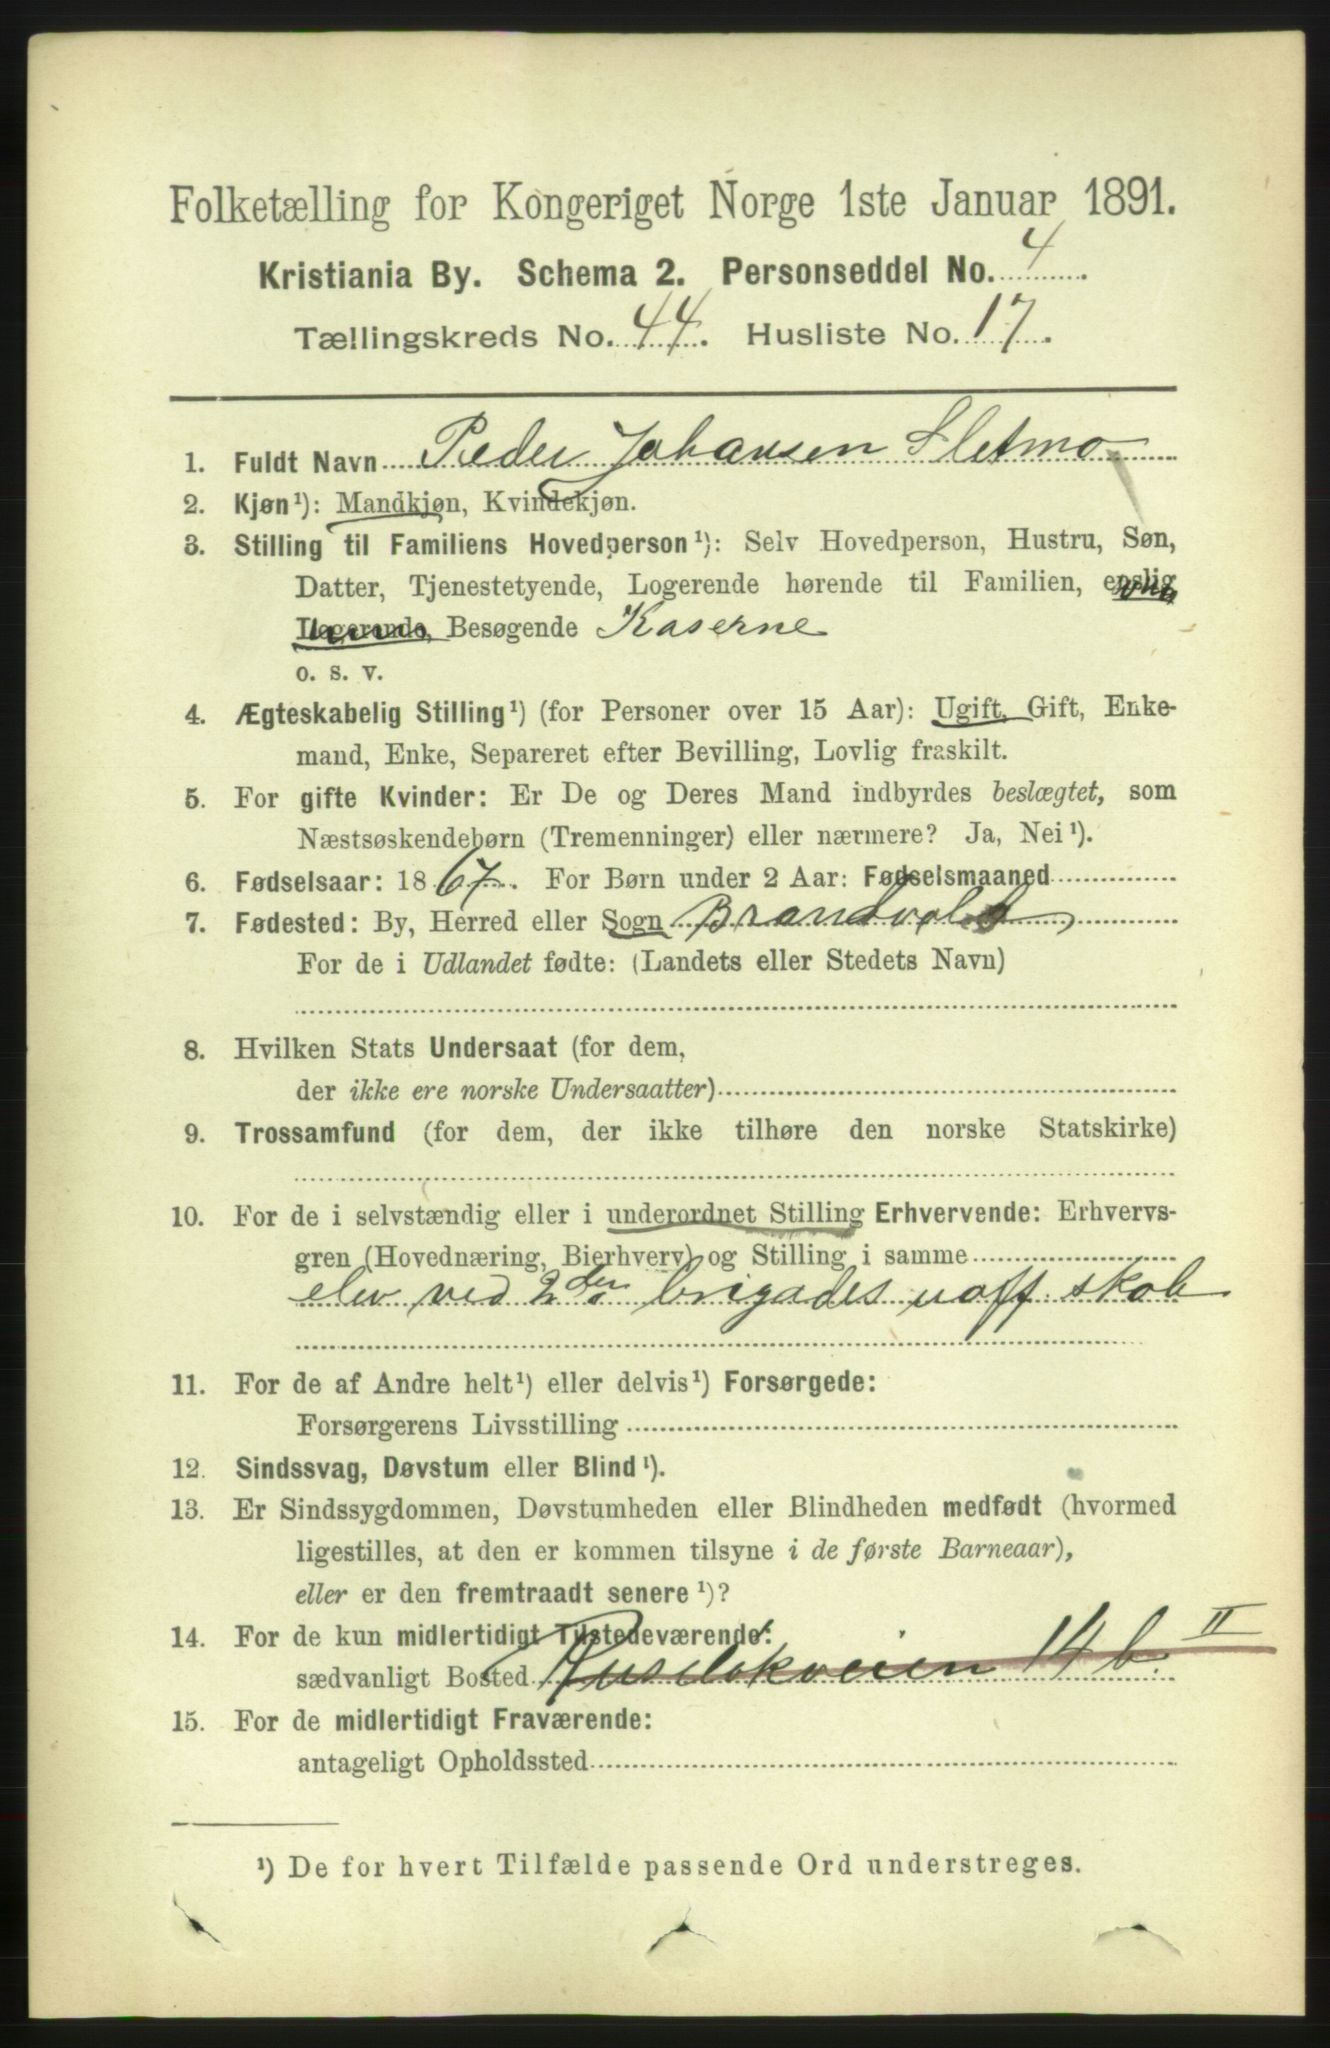 Folketælling for Kongeriget Norge 1ste Januar 1891.
Kristiania By. Schema 2. Personseddel No. 4.
Tællingskreds No. 44. Husliste No. 17.
1. Fuldt Navn Peder Johansen Sletmo
2. Kjøn¹): Mandkjøn, Kvindekjøn.
3. Stilling til Familiens Hovedperson¹): Selv Hovedperson, Hustru, Søn,
Datter, Tjenestetyende, Logerende hørende til Familien, enslig
Logerende, Besøgende Kaserne
o. s. v.
4. Ægteskabelig Stilling¹) (for Personer over 15 Aar): Ugift, Gift, Enke-
mand, Enke, Separeret efter Bevilling, Lovlig fraskilt.
5. For gifte Kvinder: Er De og Deres Mand indbyrdes beslægtet, som
Næstsøskendebørn (Tremenninger) eller nærmere? Ja, Nei¹).
6. Fødselsaar: 1867. For Børn under 2 Aar: Fødselsmaaned
7. Fødested: By, Herred eller Sogn Brandval
For de i Udlandet fødte: (Landets eller Stedets Navn)
8. Hvilken Stats Undersaat (for dem,
der ikke ere norske Undersaatter)
9. Trossamfund (for dem, der ikke tilhøre den norske Statskirke)
10. For de i selvstændig eller i underordnet Stilling Erhvervende: Erhvervs-
gren (Hovednæring, Bierhverv) og Stilling i samme
elev ved 2den brigades uoff. skole
11. For de af Andre helt¹) eller delvis¹) Forsørgede:
Forsørgerens Livsstilling
12. Sindssvag, Døvstum eller Blind¹).
13. Er Sindssygdommen, Døvstumheden eller Blindheden medfødt (hvormed
ligestilles, at den er kommen tilsyne i de første Barneaar),
eller er den fremtraadt senere¹)?
14. For de kun midlertidigt Tilstedeværende:
sædvanligt Bosted Ruseløkveien 14 b. II
15. For de midlertidigt Fraværende:
antageligt Opholdssted
¹) De for hvert Tilfælde passende Ord understreges.